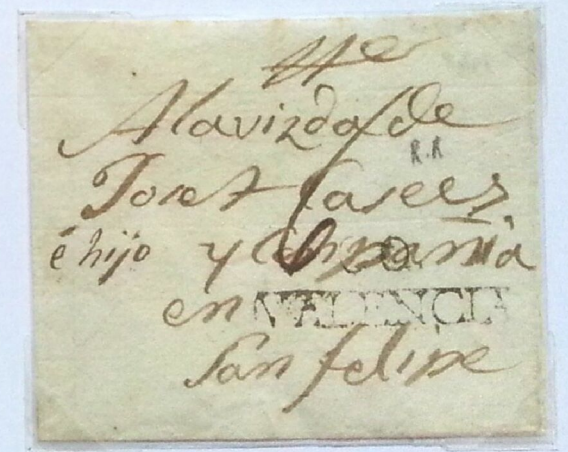 A la viuda de
R.R
Josef
é hijo y Compañia
en VALENCIA
San felipe